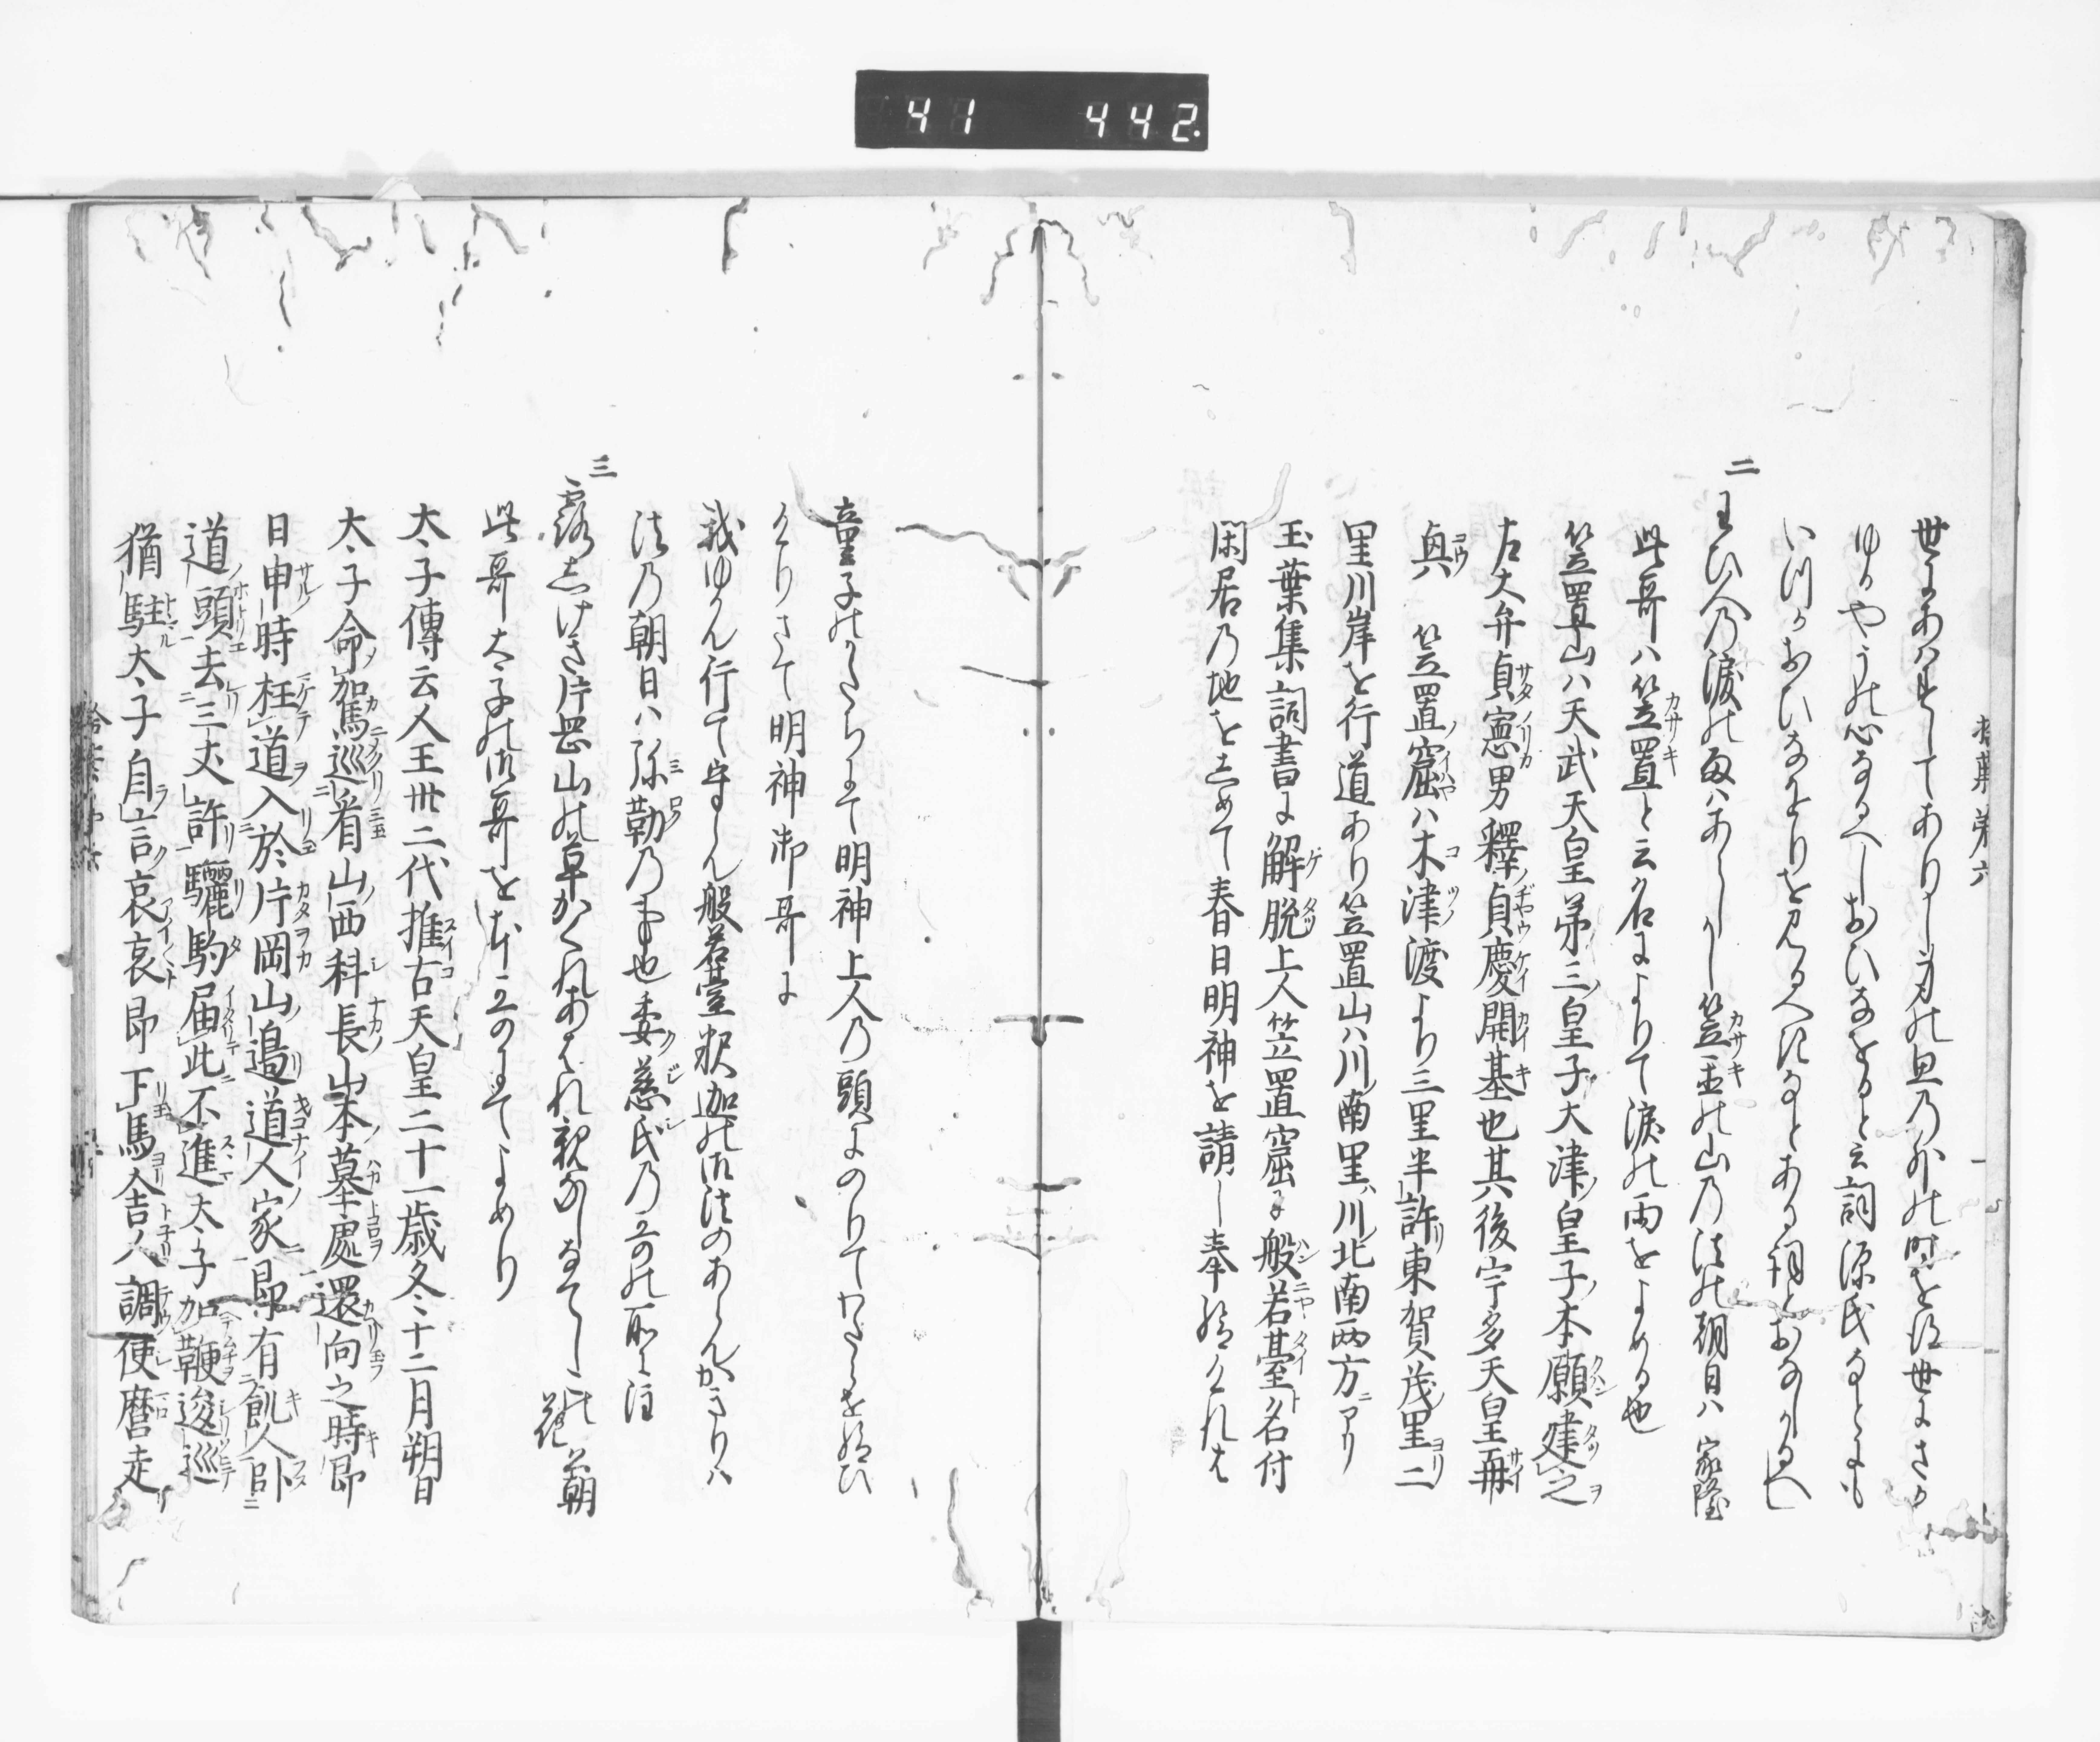 41 442.
世にあらはしてありし身の思乃外の時を得世にさか
ゆるやうの心なるへしおひなをると云詞源氏なとにも
いつるおひなをりを見るへきなとある詞とおなしかるへし
二
玉ひくの涙の雨はあらし笠置の山乃法の朝日ハ 家隆
此哥ハ笠置と云名によりて涙の雨をよめる也
笠置山ハ天武天皇第三皇子大津皇子本願建之
右大弁貞憲男釋貞慶開基也其後宇多天皇再
興 笠置窟ハ木津渡より三里半許東賀茂里二
里川岸を行道あり笠置山ハ川南里川北南両方ニアリ
玉葉集詞書に解脱上人笠置窟に般若臺ト名付
閑居乃地をしめて春日明神を請し奉給けれは
童子のかたちにて明神上人乃頭にのりてわたらせ給ひ
けりさて明神御哥に
我ゆかん行て守らん般若臺釈迦の御法のあらんかきりハ
法乃朝日ハ弥勒乃事也委慈氏乃哥の所ニ注
三
露しけき片岡山の草かくれあはれ親なしなてしこの花 朝
此哥太子の御哥を本哥にてよめり
太子傳云人王卅二代推古天皇二十一歳冬十二月朔日
太子命駕巡看山西科長山本墓處還向之時即
日申時枉道入於片岡山邊道人家即有飢人臥
道頭去三丈許驪駒届此不進太子加鞭逡巡
猶駐太子自言哀哀即下馬舎人調使麿走